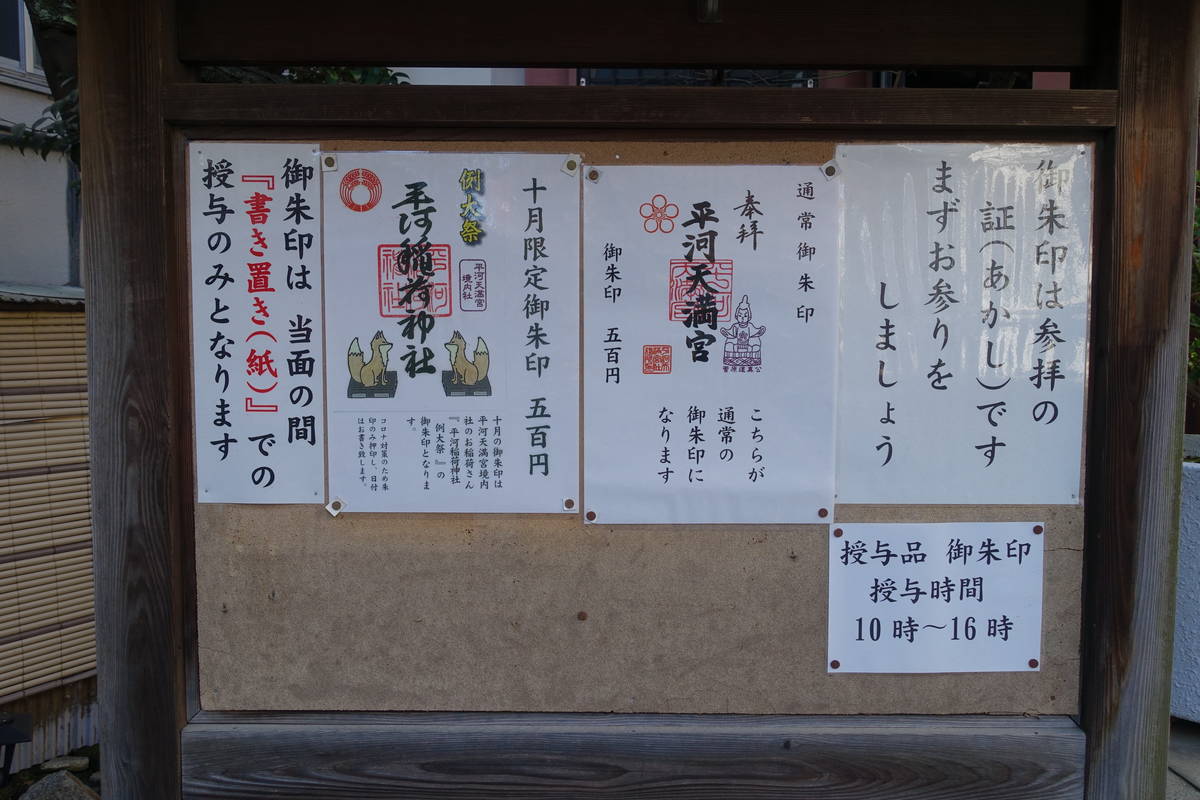 御朱印は参拝の
証(あかし)です
まずお参りを
しましょう
通常御朱印
奉拝
平河天満宮
菅原道真公
御朱印 五百円
こちらが
通常の
御朱印に
なります
十月限定御朱印 五百円
例大祭
平河天満宮
境内社
平河稲荷神社
十月の御朱印は
平河天満宮境内
社のお稲荷さん
『平河稲荷神社
例大祭』の
御朱印となりま
す。
コロナ対策のため朱
印のみ押印し、日付
はお書き致します。
御朱印は 当面の間
『書き置き(紙)』での
授与のみとなります
授与品 御朱印
授与時間
10時〜16時